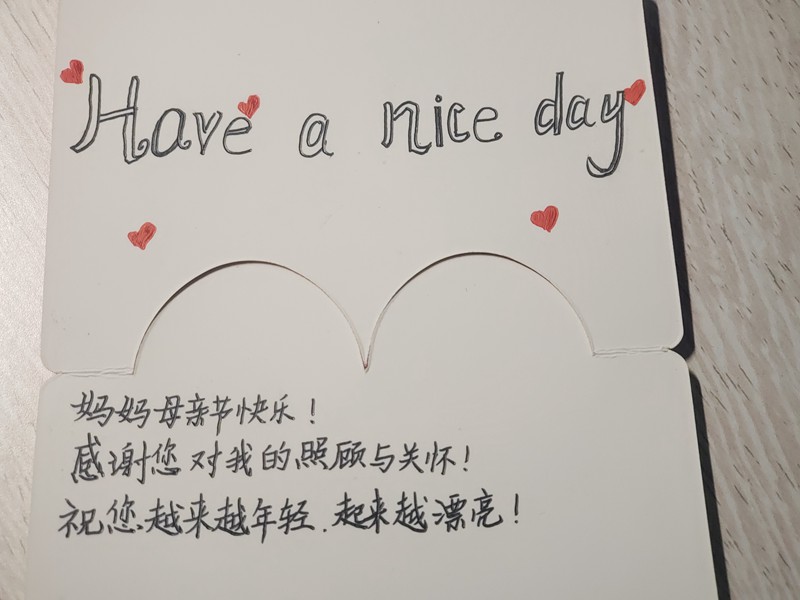 Have a nice day
妈妈母亲节快乐!
感谢您对我的照顾与关怀!
祝您越来越年轻.起来越漂亮!